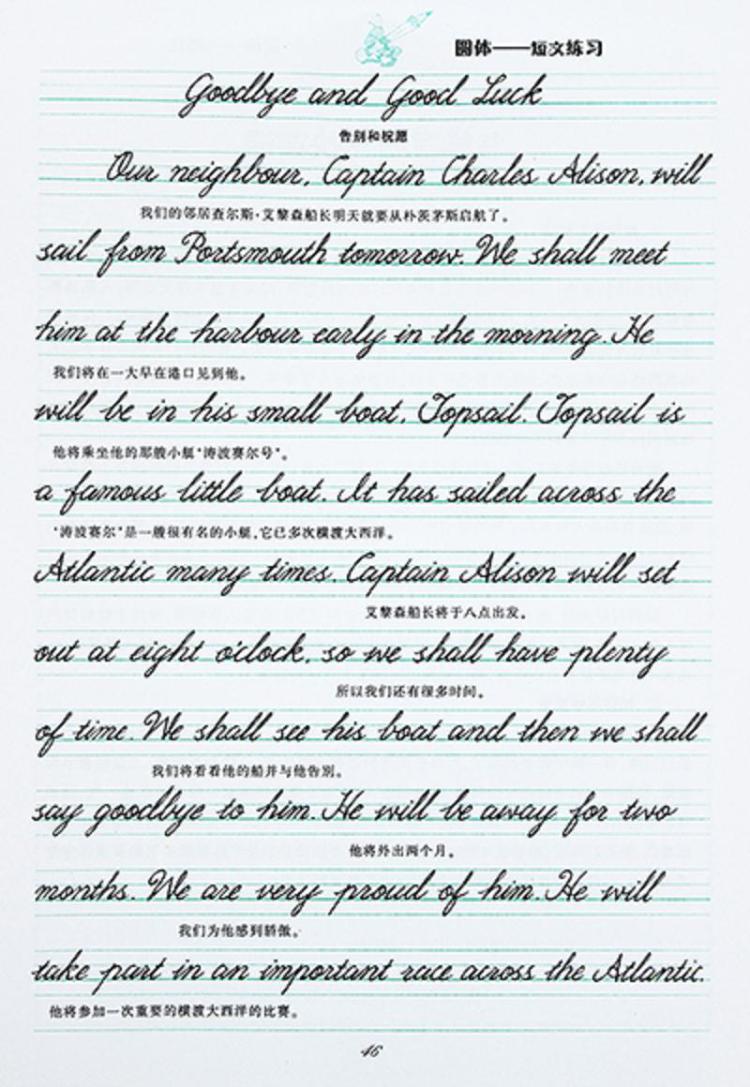 圆体——短文练习
Goodbye and Good Luck
告别和祝愿
Our neighbour, Captain Charles Alison, will
我们的邻居查尔斯·艾黎森船长明天就要从朴茨茅斯启航了。
sail from Portsmouth tomorrow. We shall meet
him at the harbour early in the morning. He
我们将在一大早在港口见到他。
will be in his small boat, Topsail. Topsail is
他将乘坐他的那艘小艇“涛波赛尔号”。
a famous little boat. It has sailed across the
“涛波赛尔”是一艘很有名的小艇,它已多次横渡大西洋。
Atlantic many times. Captain Alison will set
艾黎森船长将于八点出发。
out at eight o'clock, so we shall have plenty
所以我们还有很多时间。
of time. We shall see his boat and then we shall
我们将看看他的船并与他告别。
say goodbye to him. He will be away for two
他将外出两个月。
months. We are very proud of him. He will
我们为他感到骄傲。
take part in an important race across the Atlantic.
他将参加一次重要的横渡大西洋的比赛。
46